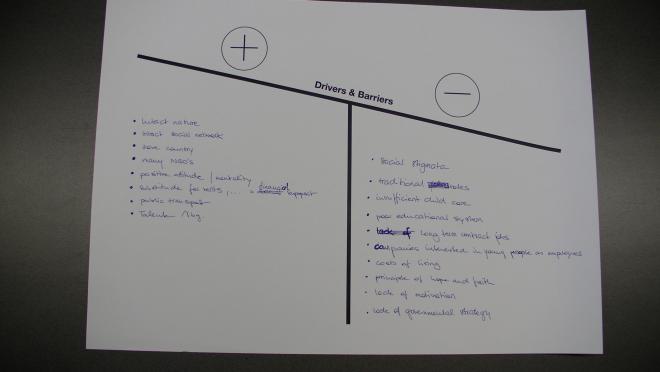 Drivers & Barriers
+
−
• intact nature
• intact social network
• save country
• many NGO's
• positive attitude / mentality
• substitude for rents, ... = financial support
• public transport
• Talents
• social stigmata
• traditional roles
• insufficient child care
• poor educational system
• long term contract jobs
• companies interested in young people as employees
• costs of living
• principle of hope and faith
• lack of motivation
• lack of governmental strategy